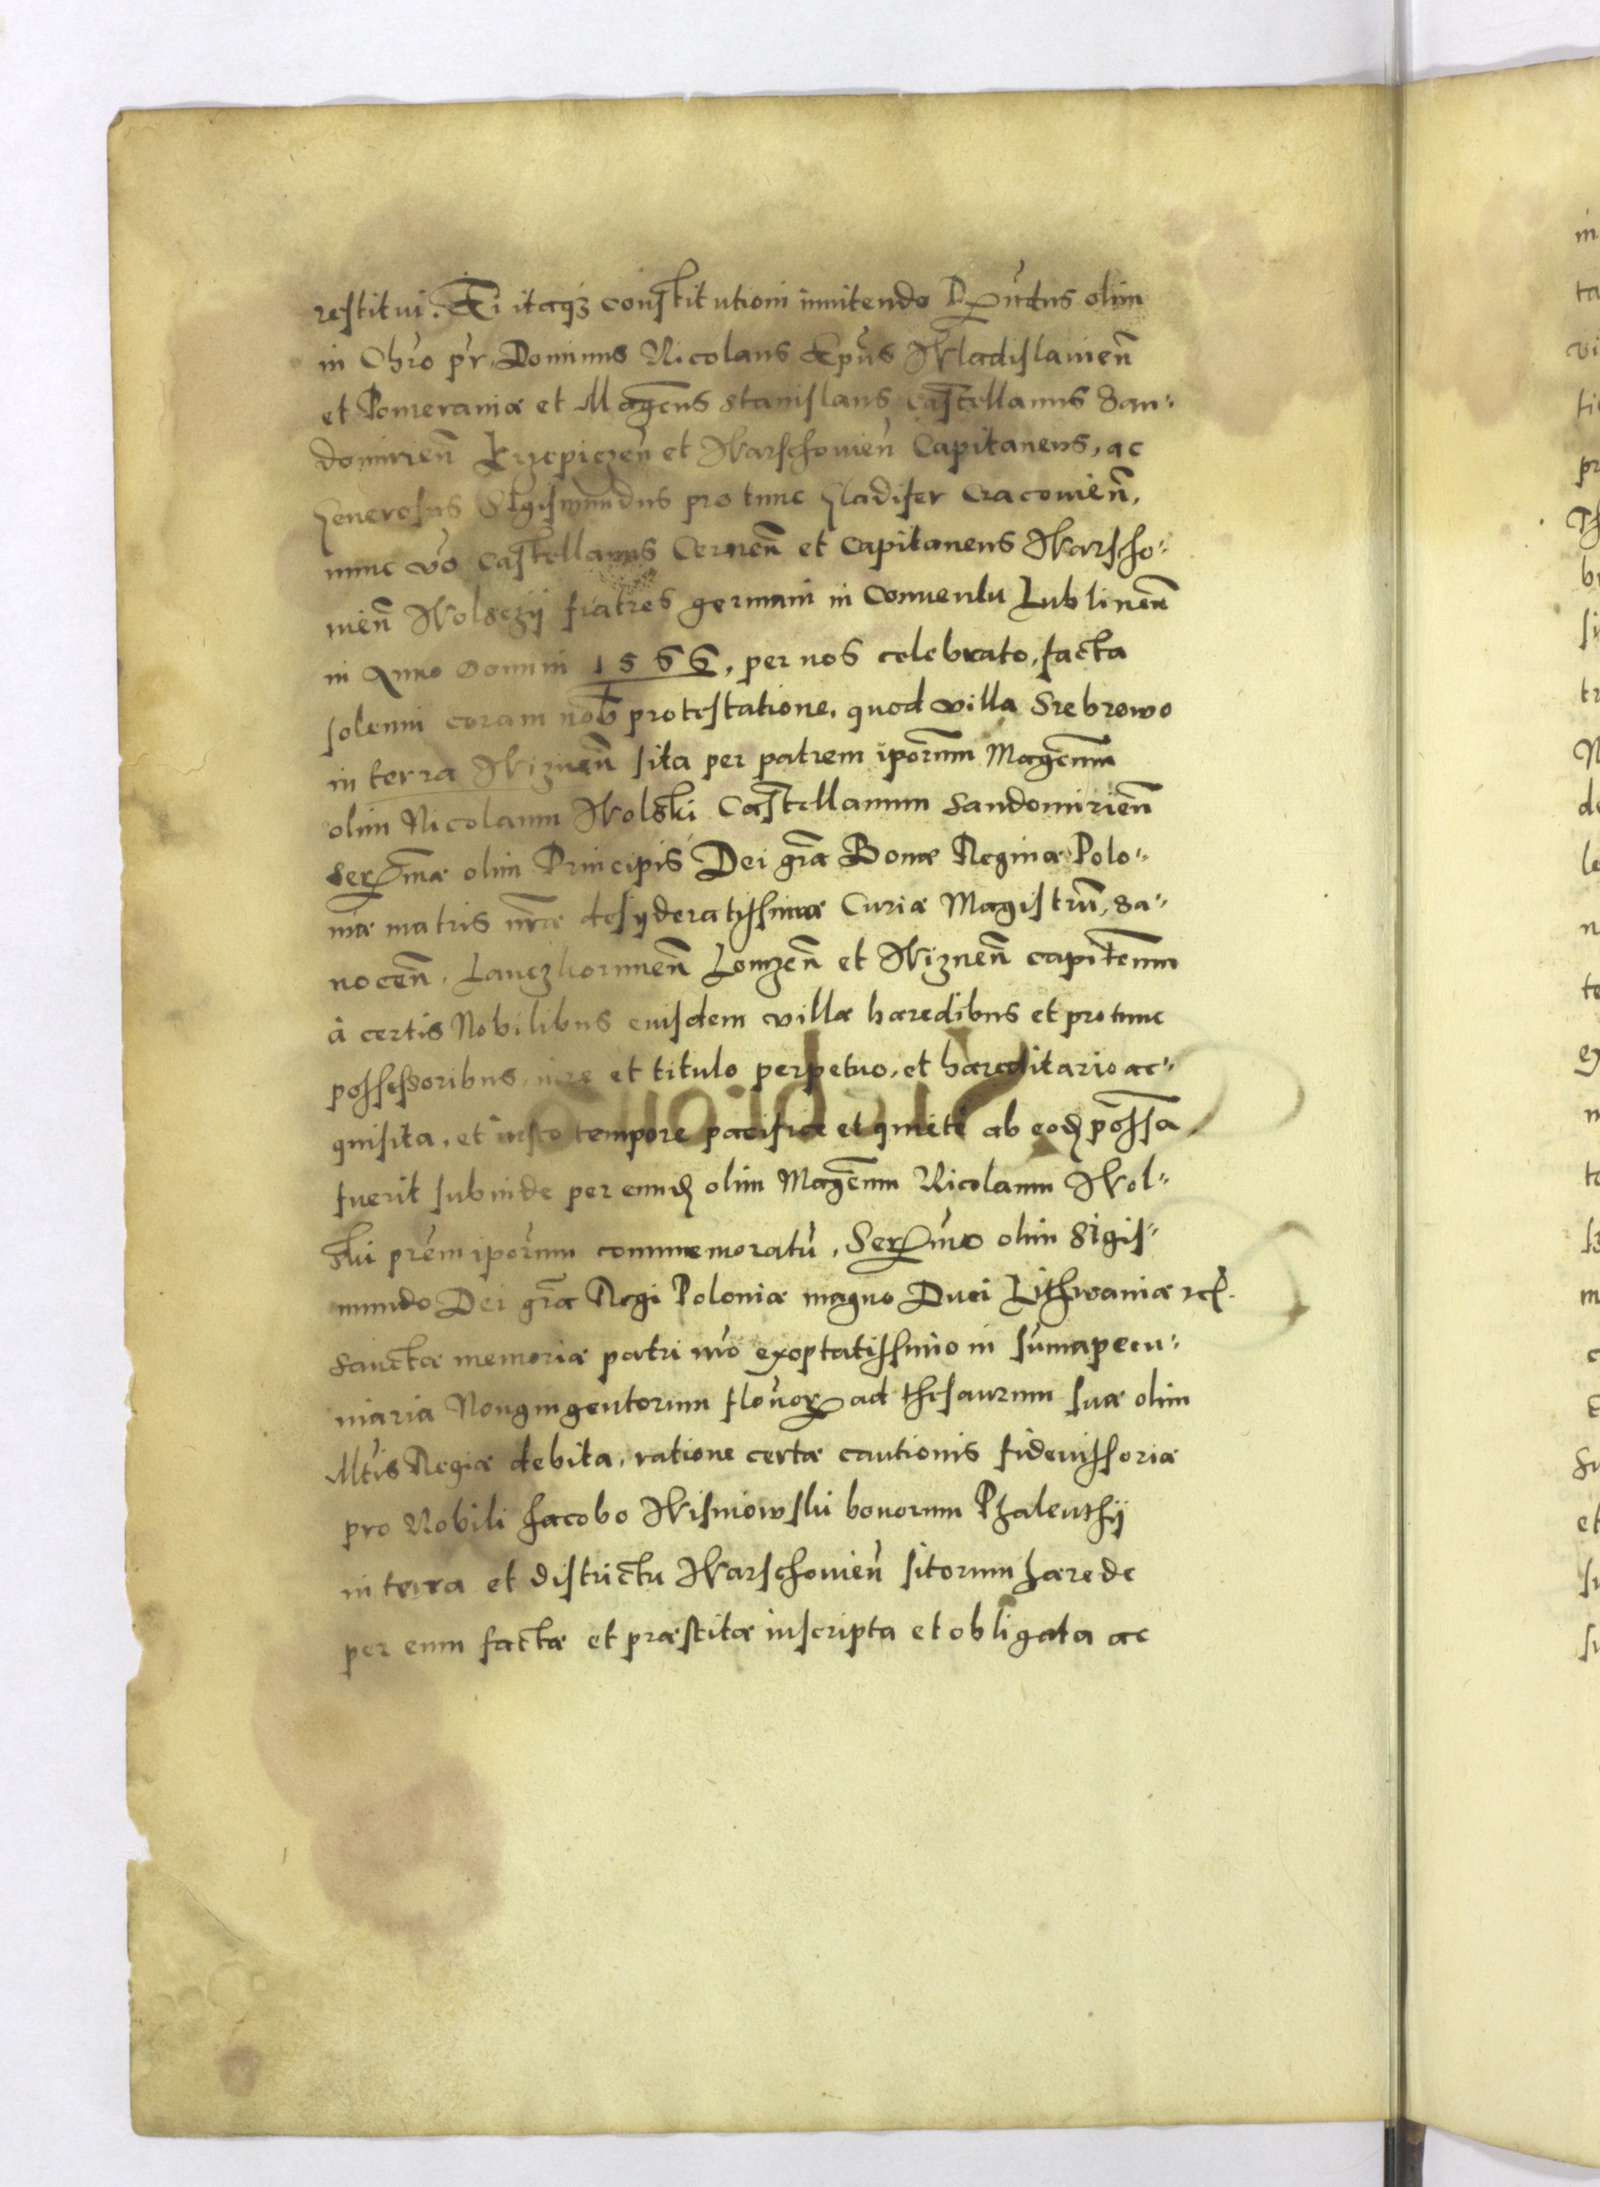 restitui. Ei itaq₃ constitutioni innitendo Rñdus olim
in Chro pr̃ Dominus Nicolaus Epũs Wladislauien̄
et Pomeraniæ et Magcus Stanislaus Castellanus San-
domirien̄ Krzepiczen̄ et Warschouien̄ Capitaneus, ac
Generosus Sigismundus pro tunc Gladifer Cracouien̄,
nunc vo Castellanus Cernen̄ et Capitaneus Warscho-
uien̄ Wolsczij fratres germani in Conuentu Lublinen̄
in Anno Domini 1566, per nos celebrato, facta
solenni coram nob̄ protestatione, quod villa Srebrowo
in terra Wiznen̄ sita per patrem ipõrum Magcum
olim Nicolaum Wolski Castellanum Sandomirien̄
Serꝫmæ olim Principis Dei grã Bonæ Reginæ Polo-
niæ matris nr̃æ desyderatissimæ Curiæ Magistrũ, Sa-
nocen̄, Lanczkorunen̄ Lomzen̄ et Wiznen̄ capiteum
à certis Nobilibus eiusdem villæ hæredibus et pro tunc
possessoribus, iure et titulo perpetuo, et hæreditario ac-
quisita, et iusto tempore pacifice et quiete ab eod̃ possa
fuerit subinde per eund̃ olim Magcum Nicolaum Wol-
ski prẽm ipõrum commemoratũ, Serꝫmo olim Sigis-
mundo Dei grã Regi Poloniæ magno Duci Lithwaniæ ꝛc̃.
Sanctæ memoriæ patri nr̃o exoptatissimo in sũma pecu-
niaria Nongingentorum floꝛenoꝝ ad thesaurum suæ olim
Mtis Regiæ debita, ratione certæ cautionis fideiussoriæ
pro Nobili Jacobo Wisniowski bonorum Phalenthij
in terra et districtu Warschouien̄ sitorum hærede
per eum factæ et præstitæ inscripta et obligata ac